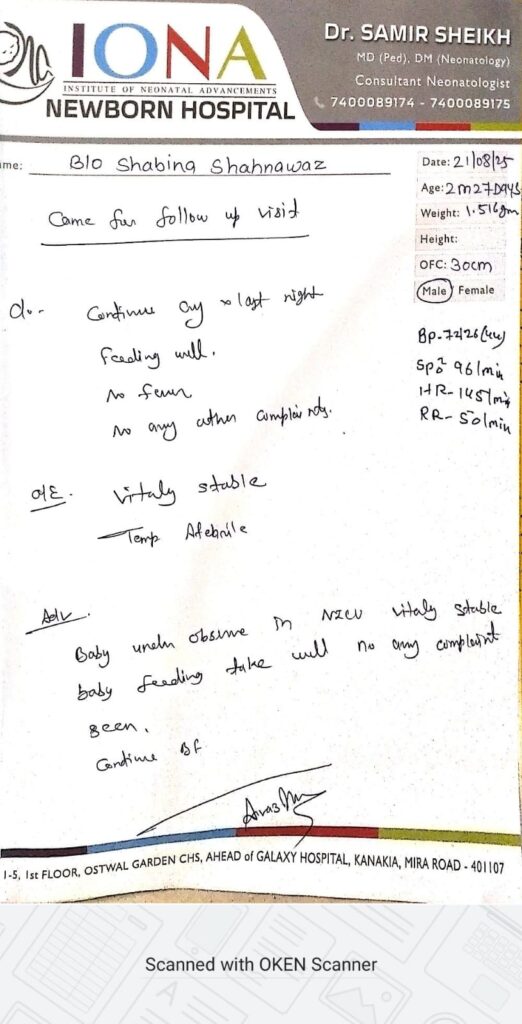 IONA
INSTITUTE OF NEONATAL ADVANCEMENTS
NEWBORN HOSPITAL
Dr. SAMIR SHEIKH
MD (Ped), DM (Neonatology)
Consultant Neonatologist
7400089174 - 7400089175
me: B/O Shabina Shahnawaz
Date: 21/08/25
Age: 2m27DAYS
Weight: 1.516gm
Height:
OFC: 30cm
Male / Female
Came for follow up visit
BP-72/26(44)
SpO2 96/min
HR-145/min
RR-50/min
Continue cry x last night
feeding well.
No fever
No any other complaints.
O/E. vitaly stable
Temp Afebrile
Adv.
Baby under observe in NICU vitaly stable
baby feeding take well no any complaint
seen.
Continue BF
1-5, 1st FLOOR, OSTWAL GARDEN CHS, AHEAD of GALAXY HOSPITAL, KANAKIA, MIRA ROAD - 401107
Scanned with OKEN Scanner